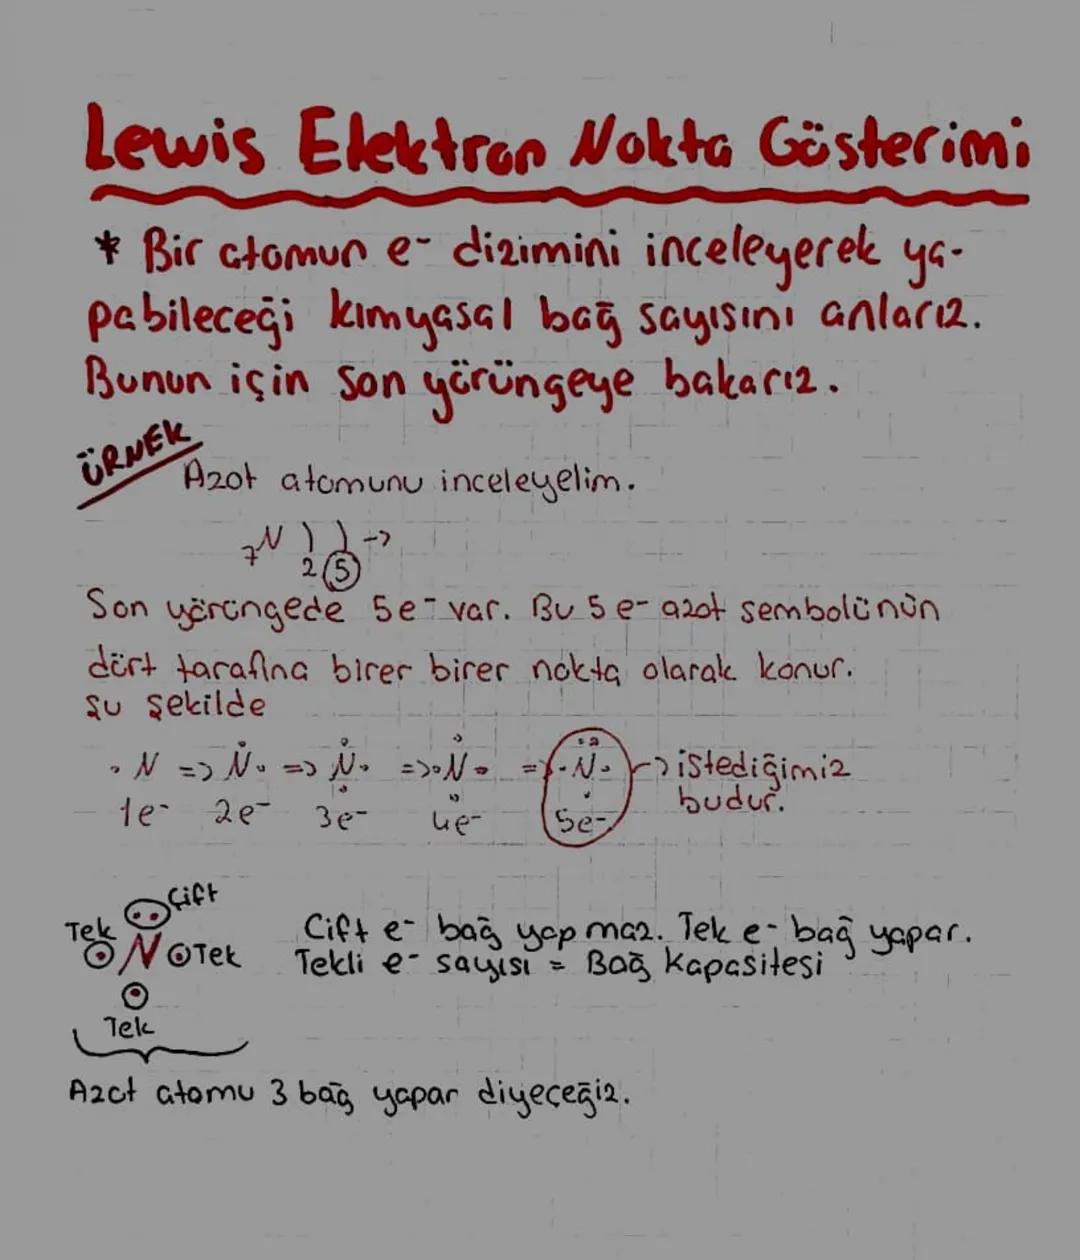 Lewis Elektron Nokta Gösterimi
* Bir atomun e- dizimini inceleyerek ya-
pabileceği kımyasal bağ sayısını anlarız.
Bunun için son yörüngeye bakarız.
ÖRNEK
Azot atomunu inceleyelim.
7N ) ) ->
2 5
Son yörüngede 5e- var. Bu 5 e- azot sembolünün
dört tarafına birer birer nokta olarak konur.
şu şekilde
N => N => N => N => N -> istediğimiz
budur.
1e- 2e- 3e- 4e- 5e-
Çift
Tek
N Tek
Tek
Cift e- bağ yapmaz. Tek e- bağ yapar.
Tekli e- sayısı = Bağ Kapasitesi
Azot atomu 3 bağ yapar diyeçeğiz.